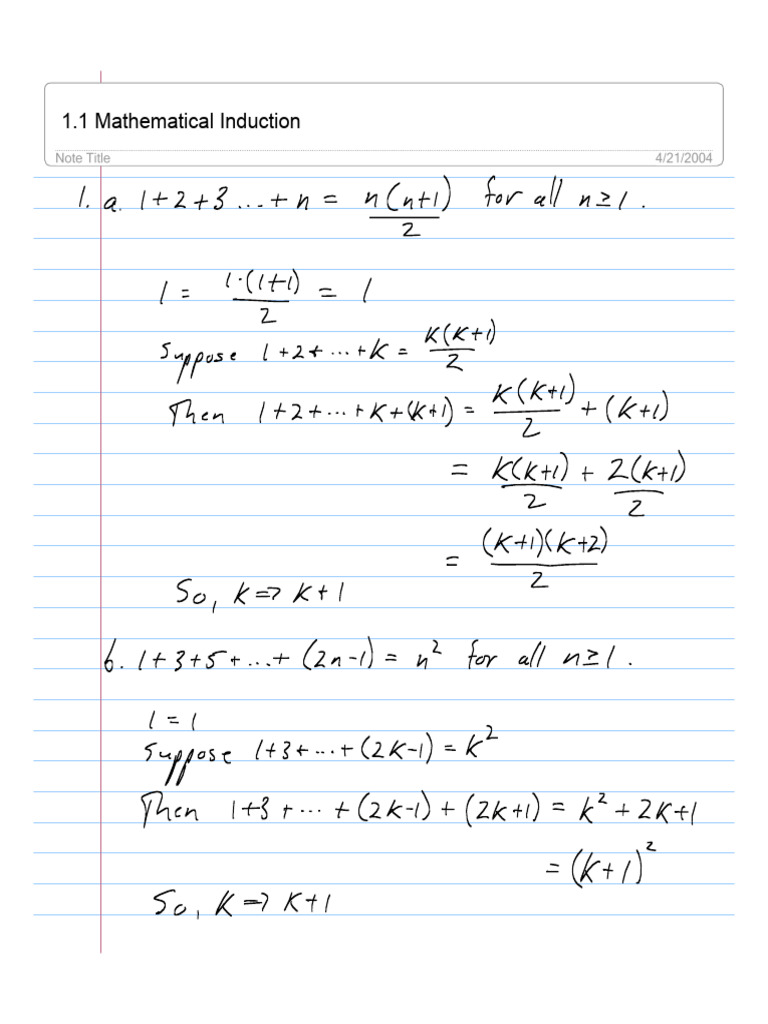 1.1 Mathematical Induction
Note Title 4/21/2004
1. a. 1+2+3 ...+n = n(n+1)/2 for all n≥1.
1 = 1·(1+1)/2 = 1
Suppose 1+2+ ... +K = K(K+1)/2
Then 1+2+ ... +K+(K+1) = K(K+1)/2 + (K+1)
= K(K+1)/2 + 2(K+1)/2
= (K+1)(K+2)/2
So, K ⇒ K+1
b. 1+3+5+ ...+ (2n-1) = n² for all n≥1.
1 = 1
Suppose 1+3+ ... +(2K-1) = K²
Then 1+3+ ... + (2K-1) + (2K+1) = K² + 2K+1
= (K+1)²
So, K ⇒ K+1